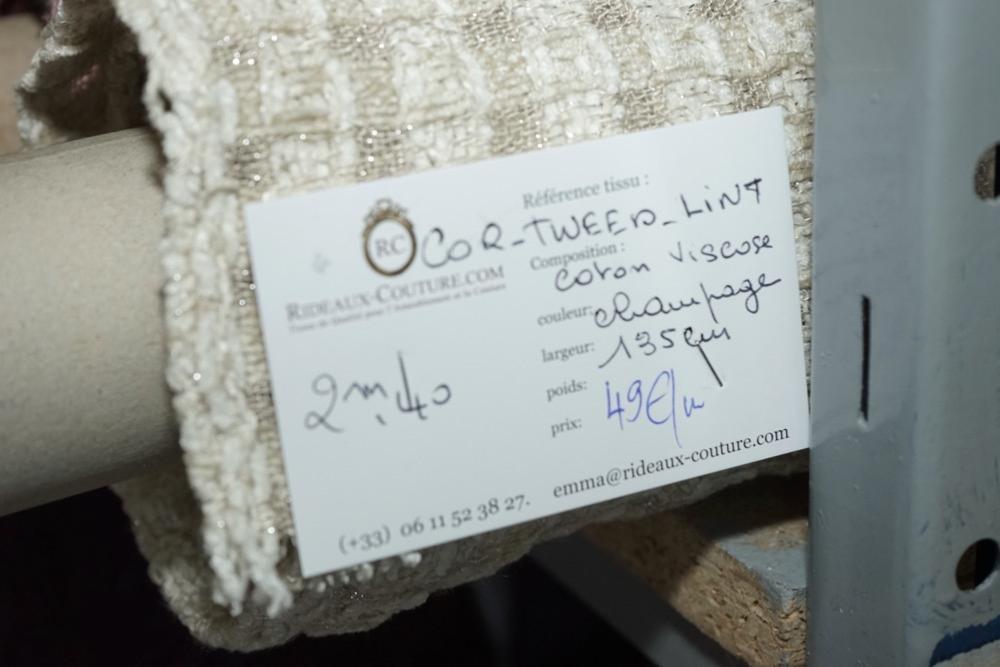 RC
RIDEAUX-COUTURE.COM
Référence tissu :
COR_TWEED_LINT
Composition :
coton viscose
couleur: champage
largeur: 135cm
poids:
prix: 49€/m
2m.40
(+33) 06 11 52 38 27.
emma@rideaux-couture.com